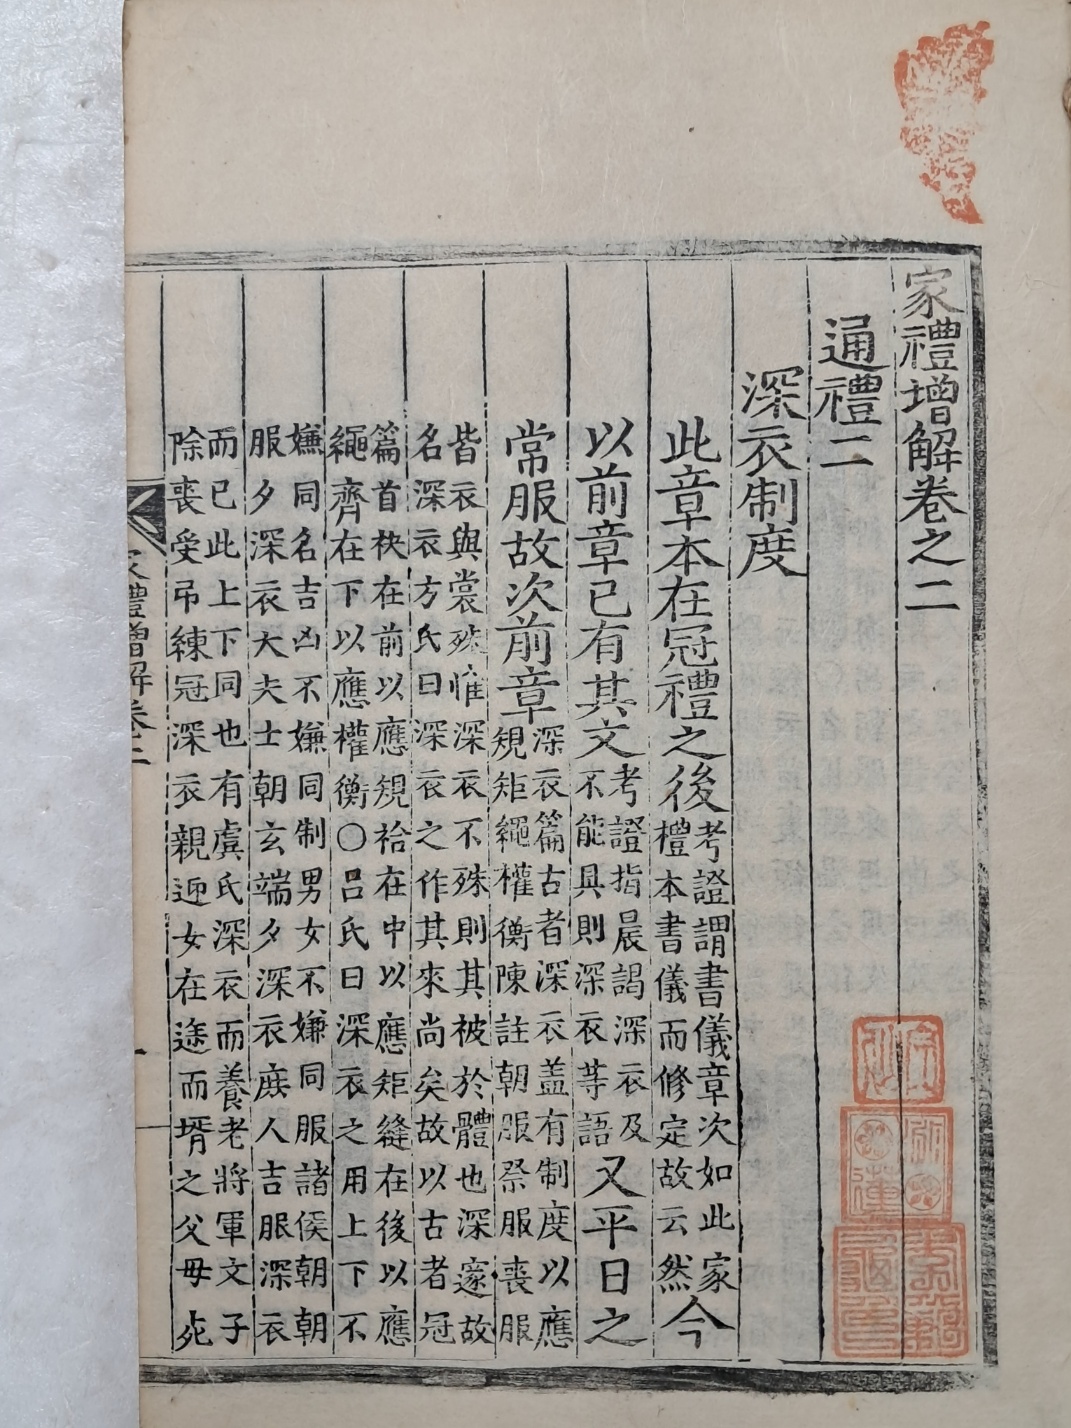 家禮增解卷之二
通禮二
深衣制度
此章本在冠禮之後考證謂書儀章次如此家禮本書儀而修定故云然今
以前章已有其文考證指晨謁深衣及不能具則深衣等語又平日之
常服故次前章深衣篇古者深衣盖有制度以應規矩繩權衡陳註朝服祭服喪服
皆衣與裳殊惟深衣不殊則其被於體也深邃故名深衣方氏曰深衣之作其來尚矣故以古者冠
篇首袂在前以應規袷在中以應矩縫在後以應繩齊在下以應權衡〇呂氏曰深衣之用上下不
嫌同名吉凶不嫌同制男女不嫌同服諸侯朝朝服夕深衣大夫士朝玄端夕深衣庶人吉服深衣
而已此上下同也有虞氏深衣而養老將軍文子除喪受弔練冠深衣親迎女在途而壻之父母死
家禮增解卷二